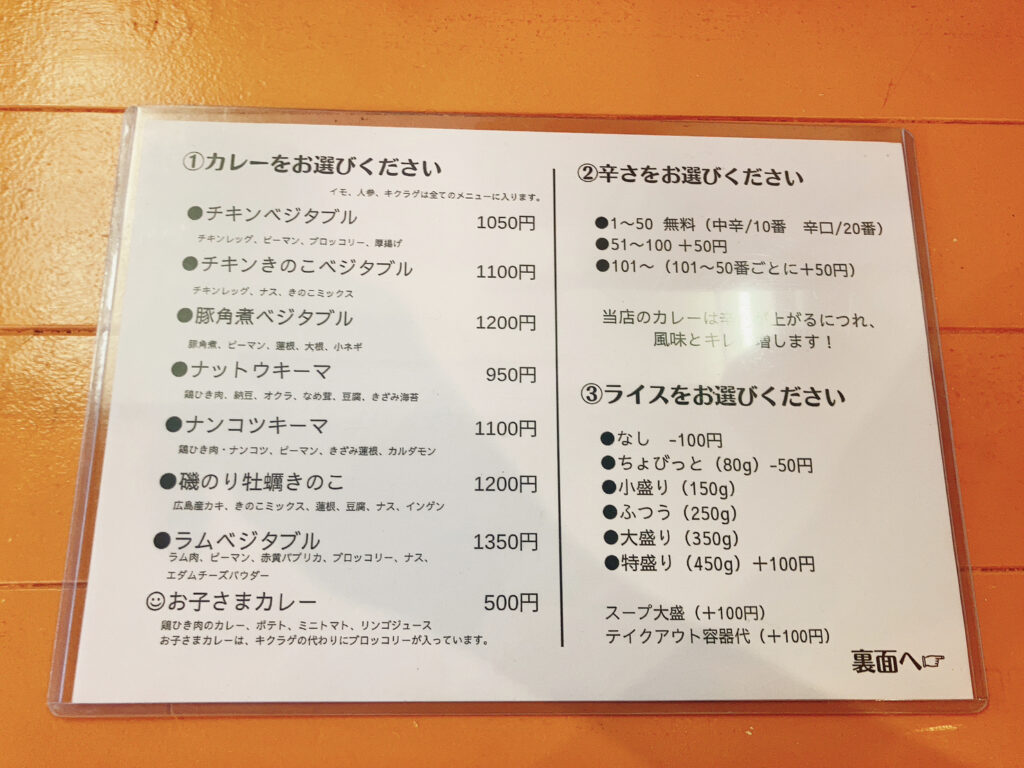 ①カレーをお選びください
イモ、人参、キクラゲは全てのメニューに入ります。
●チキンベジタブル 1050円
チキンレッグ、ピーマン、ブロッコリー、厚揚げ
●チキンきのこベジタブル 1100円
チキンレッグ、ナス、きのこミックス
●豚角煮ベジタブル 1200円
豚角煮、ピーマン、蓮根、大根、小ネギ
●ナットウキーマ 950円
鶏ひき肉、納豆、オクラ、なめ茸、豆腐、きざみ海苔
●ナンコツキーマ 1100円
鶏ひき肉・ナンコツ、ピーマン、きざみ蓮根、カルダモン
●磯のり牡蠣きのこ 1200円
広島産カキ、きのこミックス、蓮根、豆腐、ナス、インゲン
●ラムベジタブル 1350円
ラム肉、ピーマン、赤黄パプリカ、ブロッコリー、ナス、
エダムチーズパウダー
☺お子さまカレー 500円
鶏ひき肉のカレー、ポテト、ミニトマト、リンゴジュース
お子さまカレーは、キクラゲの代わりにブロッコリーが入っています。
②辛さをお選びください
●1〜50 無料（中辛/10番 辛口/20番）
●51〜100 +50円
●101〜（101〜50番ごとに+50円）
当店のカレーは辛 上がるにつれ、
風味とキレ 増します！
③ライスをお選びください
●なし -100円
●ちょびっと（80g）-50円
●小盛り（150g）
●ふつう（250g）
●大盛り（350g）
●特盛り（450g）+100円
スープ大盛（+100円）
テイクアウト容器代（+100円）
裏面へ☞